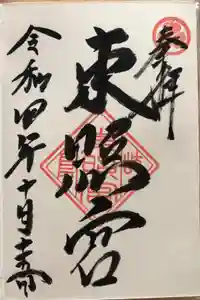 奉拝
東照宮
令和四年十月